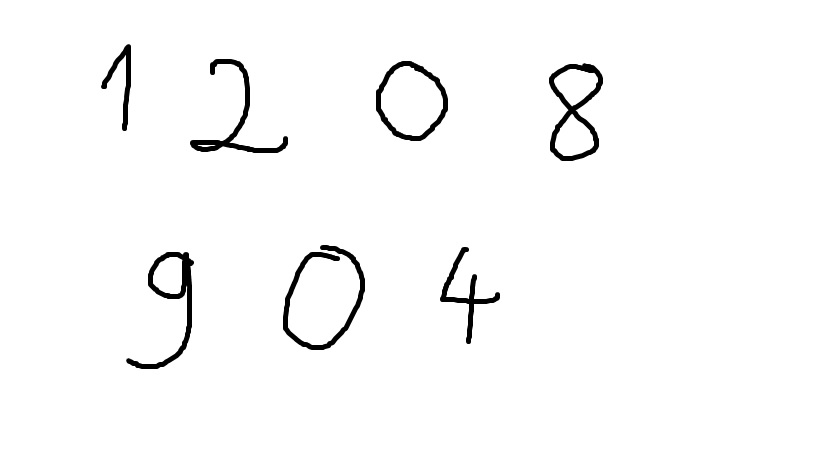 1 2 0 8
9 0 4